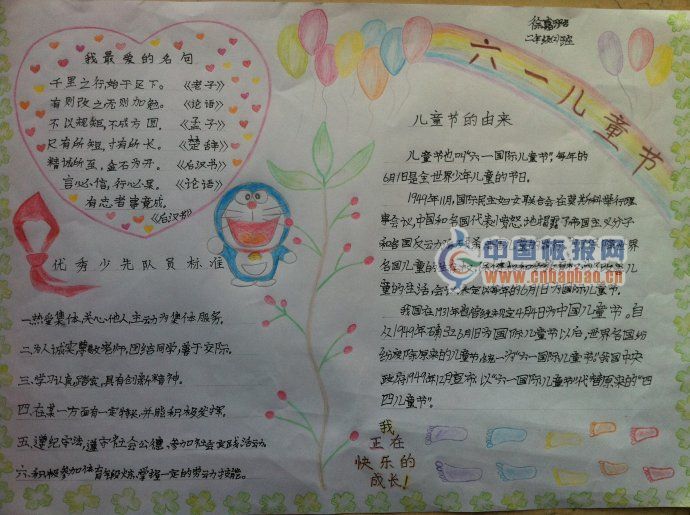 我最爱的名句
千里之行,始于足下。《老子》
有则改之无则加勉。《论语》
不以规矩,不成方圆。《孟子》
尺有所短,寸有所长。《楚辞》
精诚所至,金石为开。《后汉书》
言必信,行必果。《论语》
有志者事竟成。
《后汉书》
优秀少先队员标准
一.热爱集体、关心他人、主动为集体服务。
二.为人诚实,尊敬老师,团结同学,善于交际。
三.学习认真,踏实,具有创新精神。
四.在某一方面有一定特长,并能积极发挥。
五.遵纪守法,遵守社会公德,参加社会实践活动
六.积极参加体育锻炼,掌握一定的劳动技能。
二年级
六一儿童节
儿童节的由来
儿童节也叫“六一国际儿童节”,每年的
6月1日是全世界少年儿童的节日。
1949年11月,国际民主妇女联合会在莫斯科举行理
事会议,中国和各国代表愤怒地揭露了帝国主义分子
和各国反动
各国儿童的生存
的生活会议决定以每年的6月1日为国际儿童节。
我国在1931年曾经规定4月4日为中国儿童节。自
从1949年确立6月1日为国际儿童节以后,世界各国纷
纷废除原来的儿童节统一为“六一国际儿童节”我国中央
政府1949年12月宣布以“六一国际儿童节”代替原来的“四
四儿童节”。
中国板报网
www.cnbanbao.cn
我
正在
快乐的
成长!